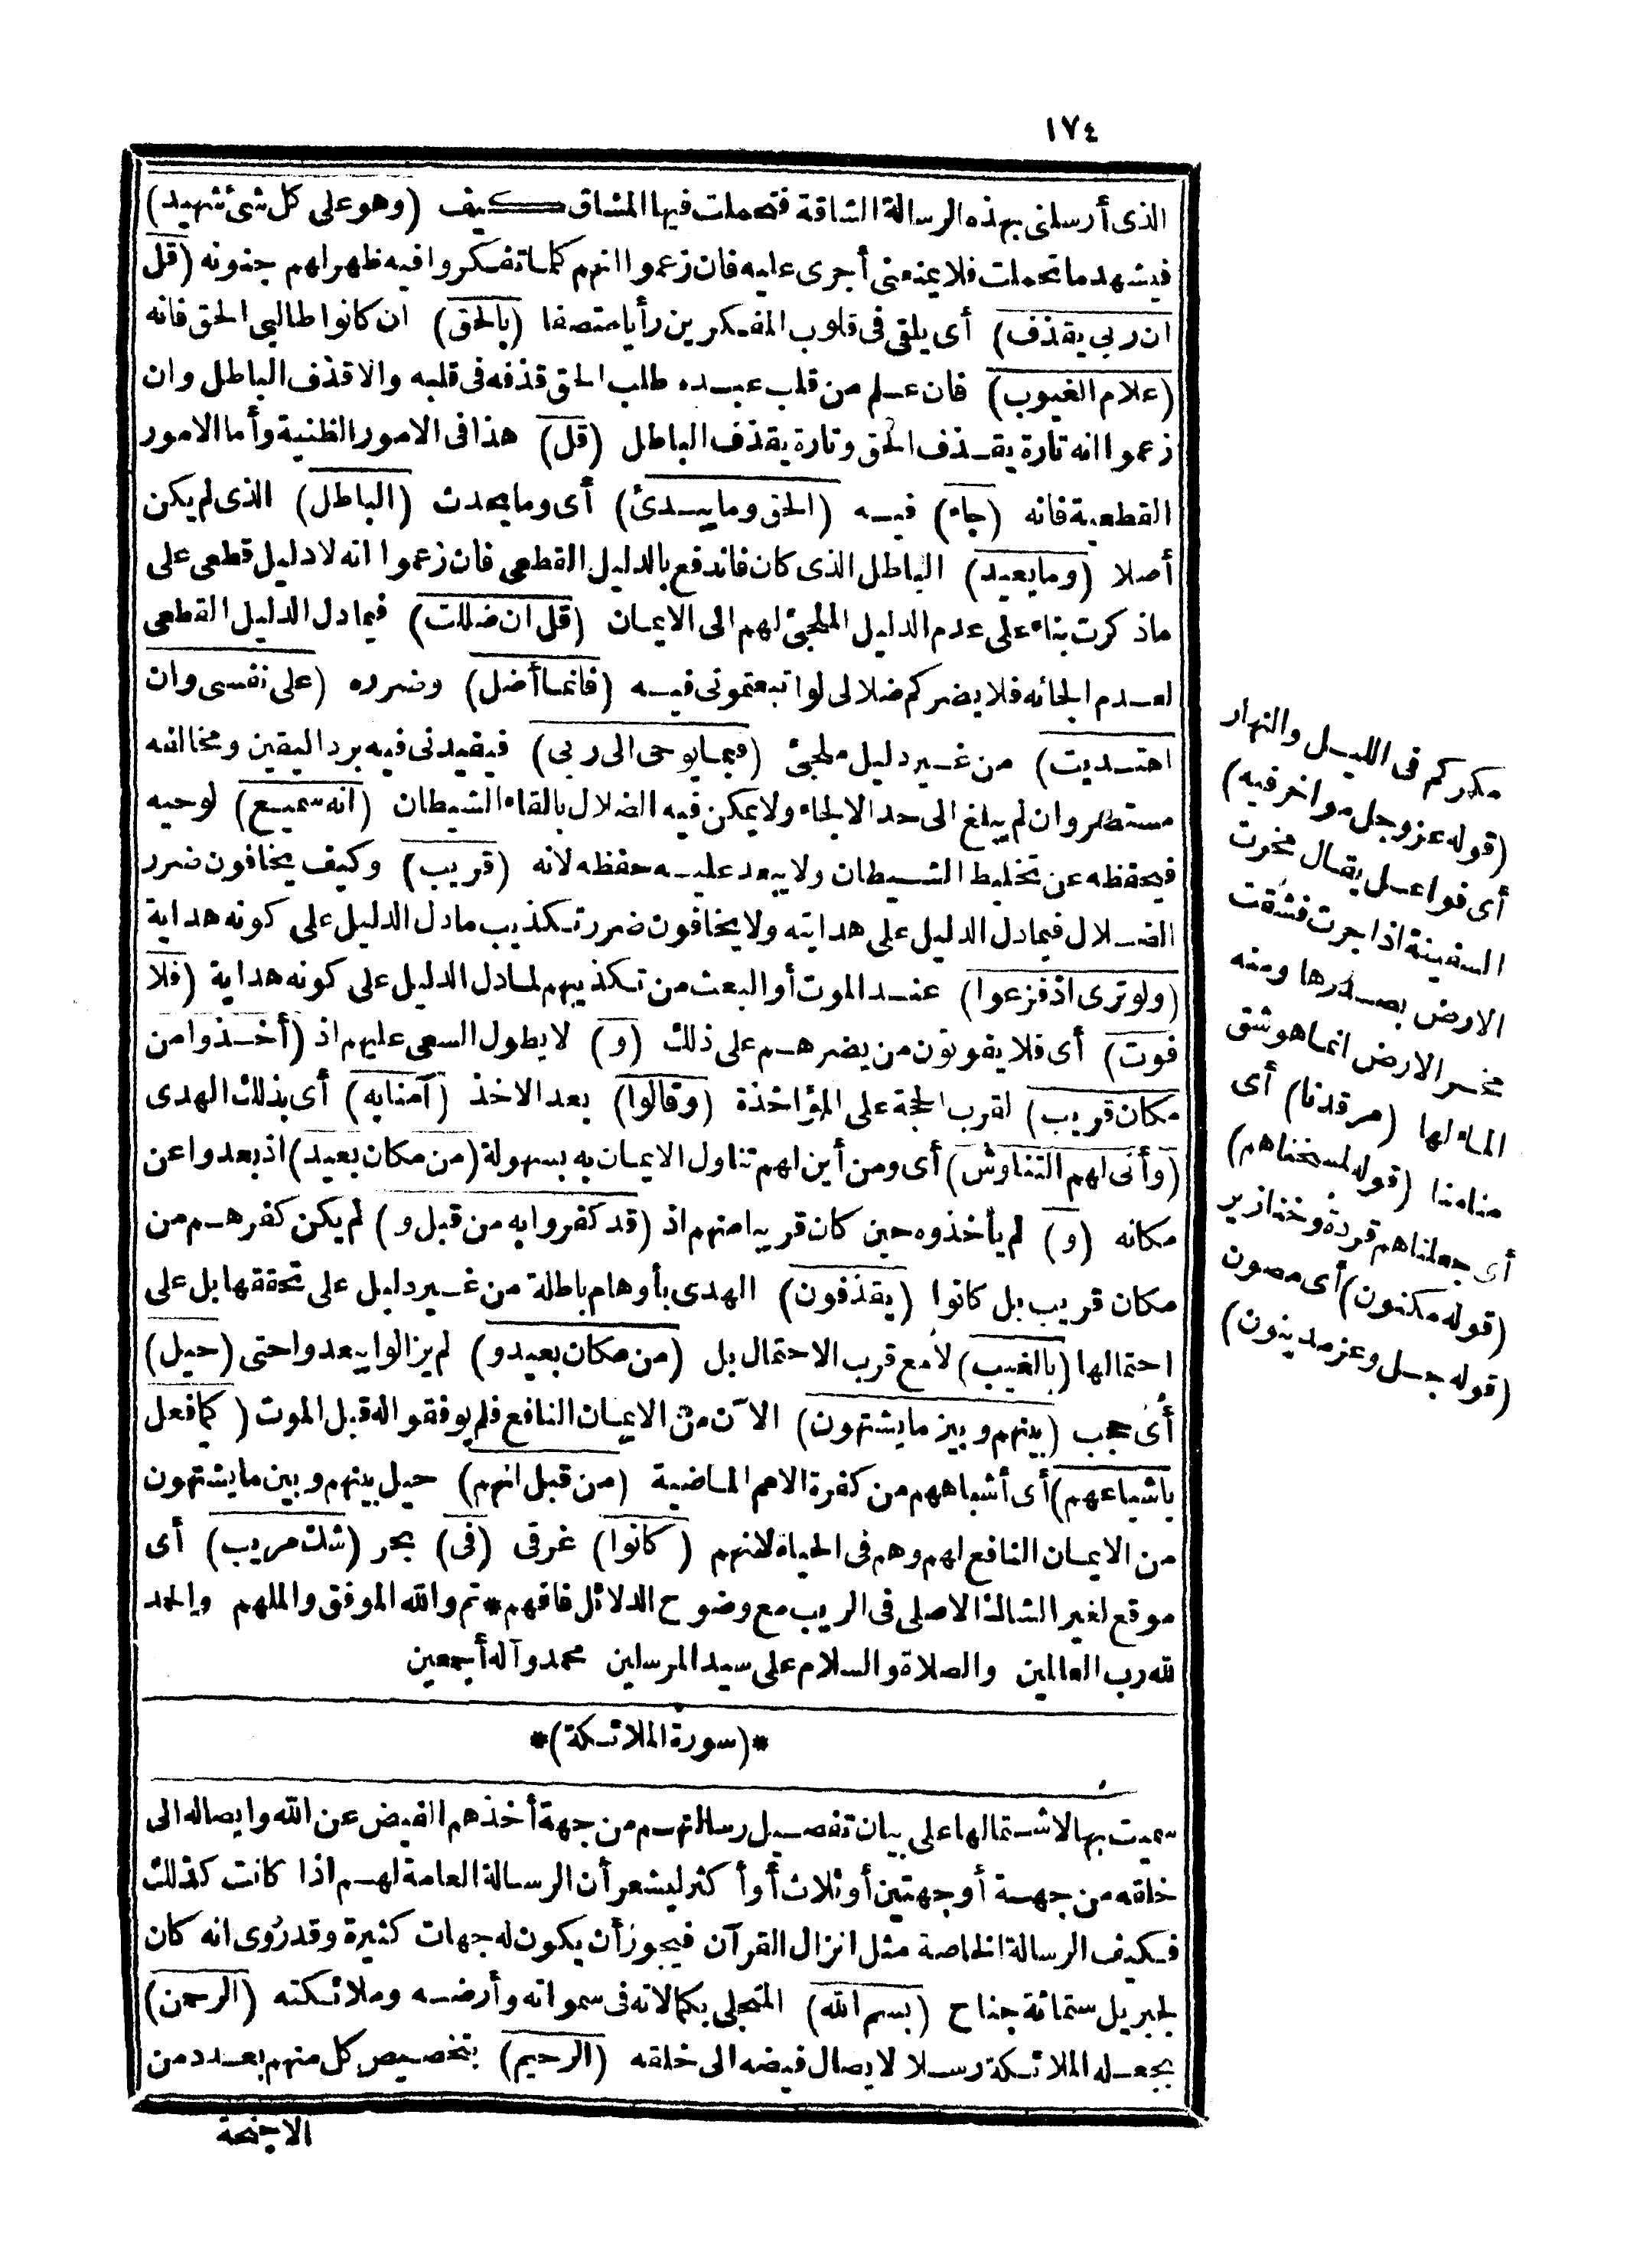 ١٧٤
الذى أرسلنى بهذه الرسالة الشاقة فتحملت فيها المشاق كيف (وهو على كل شئ شهيد)
فيشهد ما تحملت فلا يمنعنى أجرى عليه فان زعموا انهم كلما تفكروا فيه ظهر لهم جنونه (قل
ان ربي يقذف) أى يلقى فى قلوب المفكرين رأيا متصفا (بالحق) ان كانوا طالبي الحق فانه
(علام الغيوب) فان علم من قلب عبده طلب الحق قذفه فى قلبه والا قذف الباطل وان
زعموا انه تارة يقذف الحق وتارة يقذف الباطل (قل) هذا فى الامور الظنية وأما الامور
القطعية فانه (جاء) فيه (الحق وما يبدئ) أى وما يحدث (الباطل) الذى لم يكن
أصلا (وما يعيد) الباطل الذى كان فاندفع بالدليل القطعى فان زعموا انه لا دليل قطعى على
ماذكرت بناء على عدم الدليل الملجئ لهم الى الايمان (قل ان ضللت) فيما دل الدليل القطعى
لعدم الجائه فلا يضركم ضلالى لو اتبعتمونى فيه (فانما أضل) وضرره (على نفسى وان
اهتديت) من غير دليل ملجئ (فبما يوحى الى ربى) فيفيدنى فيه برد اليقين ومخالفه
مستضر وان لم يبلغ الى حد الالجاء ولا يمكن فيه الضلال بالقاء الشيطان (انه سميع) لوحيه
فيحفظه عن تخليط الشيطان ولا يبعد عليه حفظه لانه (قريب) وكيف يخافون ضرر
الضلال فيما دل الدليل على هدايته ولا يخافون ضرر تكذيب ما دل الدليل على كونه هداية
(ولو ترى اذ فزعوا) عند الموت أو البعث من تكذيبهم لما دل الدليل على كونه هداية (فلا
فوت) أى فلا يفوتون من يضرهم على ذلك (و) لا يطول السعى عليهم اذ (أخذوا من
مكان قريب) لقرب الحجة على المؤاخذة (وقالوا) بعد الاخذ (آمنا به) أى بذلك الهدى
(وأنى لهم التناوش) أى ومن أين لهم تناول الايمان به بسهولة (من مكان بعيد) اذ بعدوا عن
مكانه (و) لم يأخذوه حين كان قريبا منهم اذ (قد كفروا به من قبل و) لم يكن كفرهم من
مكان قريب بل كانوا (يقذفون) الهدى بأوهام باطلة من غير دليل على تحققها بل على
احتمالها (بالغيب) لا مع قرب الاحتمال بل (من مكان بعيد و) لم يزالوا يبعدوا حتى (حيل)
أى حجب (بينهم وبين ما يشتهون) الآن من الايمان النافع فلم يوفقوا له قبل الموت (كما فعل
باشياعهم) أى أشباههم من كفرة الامم الماضية (من قبل انهم) حيل بينهم وبين ما يشتهون
من الايمان النافع لهم وهم فى الحياة لانهم (كانوا) غرقى (فى) بحر (شك مريب) أى
موقع لغير الشاك الاصلى فى الريب مع وضوح الدلائل فافهم * تم والله الموفق والملهم والحمد
لله رب العالمين والصلاة والسلام على سيد المرسلين محمد وآله أجمعين
*(سورة الملائكة)*
سميت بها لاشتمالها على بيان تفصيل رسالتهم من جهة أخذهم الفيض عن الله وايصاله الى
خلقه من جهة أو جهتين أو ثلاث أو أكثر ليشعر أن الرسالة العامة لهم اذا كانت كذلك
فكيف الرسالة الخاصة مثل انزال القرآن فيجوز أن يكون له جهات كثيرة وقد روى انه كان
لجبريل ستمائة جناح (بسم الله) المتجلى بكمالاته فى سمواته وأرضه وملائكته (الرحمن)
بجعله الملائكة رسلا لايصال فيضه الى خلقه (الرحيم) بتخصيص كل منهم بعدد من
الاجنحة
مكركم فى الليل والنهار
(قوله عز وجل مواخر فيه)
أى فواعل يقال مخرت
السفينة اذا جرت فشقت
الارض بصدرها ومنه
مخر الارض انما هو شق
الماء لها (مرقدنا) أى
منامنا (قوله لمسخناهم)
أى جعلناهم قردة وخنازير
(قوله مكنون) أى مصون
(قوله جل وعز مدينون)